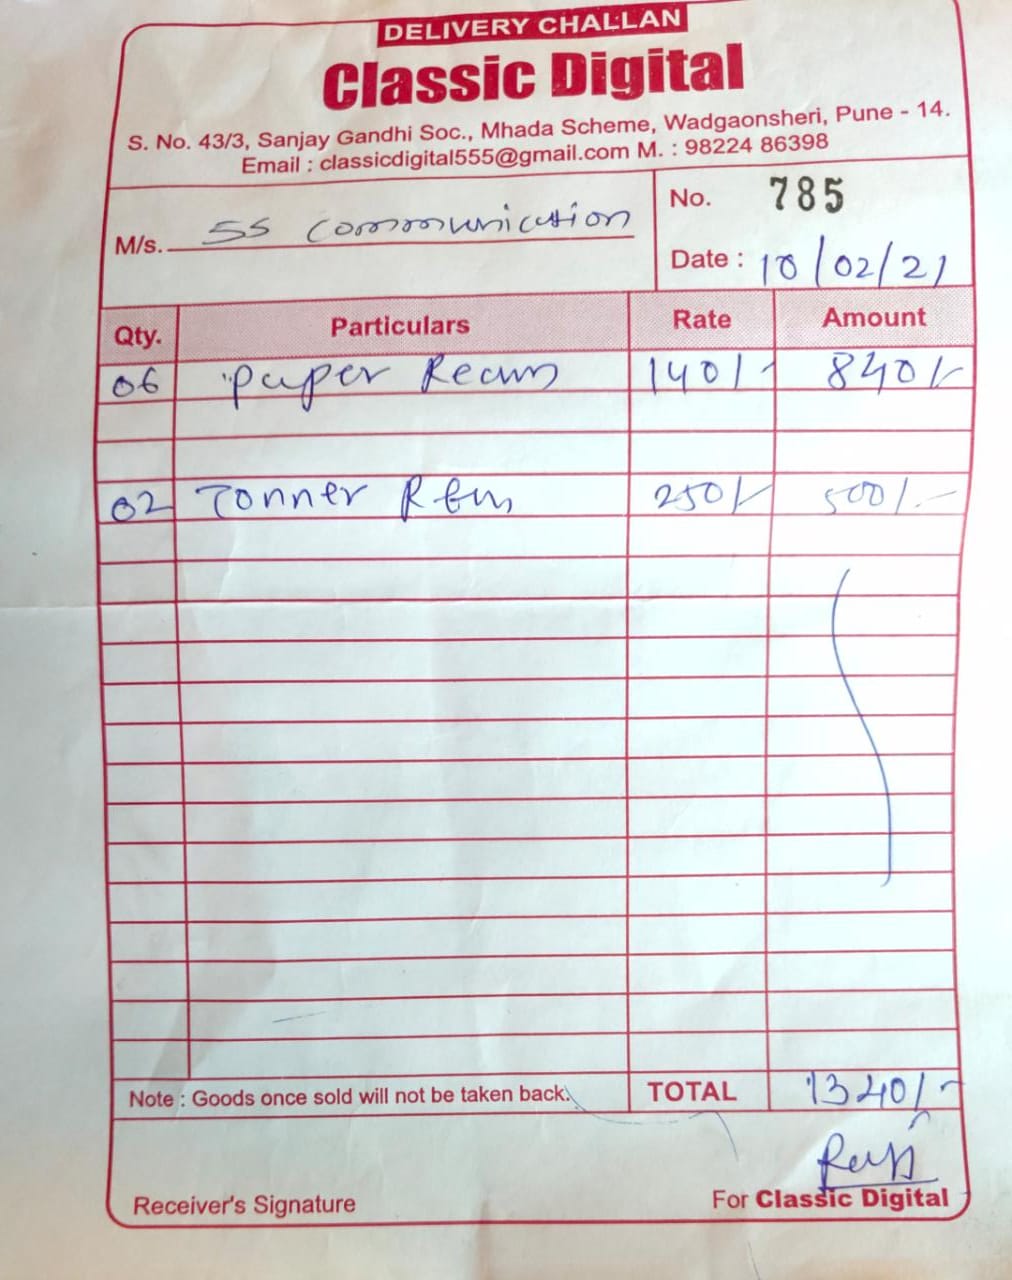 DELIVERY CHALLAN
Classic Digital
S. No. 43/3, Sanjay Gandhi Soc., Mhada Scheme, Wadgaonsheri, Pune - 14.
Email : classicdigital555@gmail.com M. : 98224 86398
M/s. SS Communication
No. 785
Date : 10/02/21
Qty. Particulars Rate Amount
06 Paper Ream 140/- 840/-
02 Tonner 250/- 500/-
Note : Goods once sold will not be taken back. TOTAL 1340/-
Receiver's Signature For Classic Digital